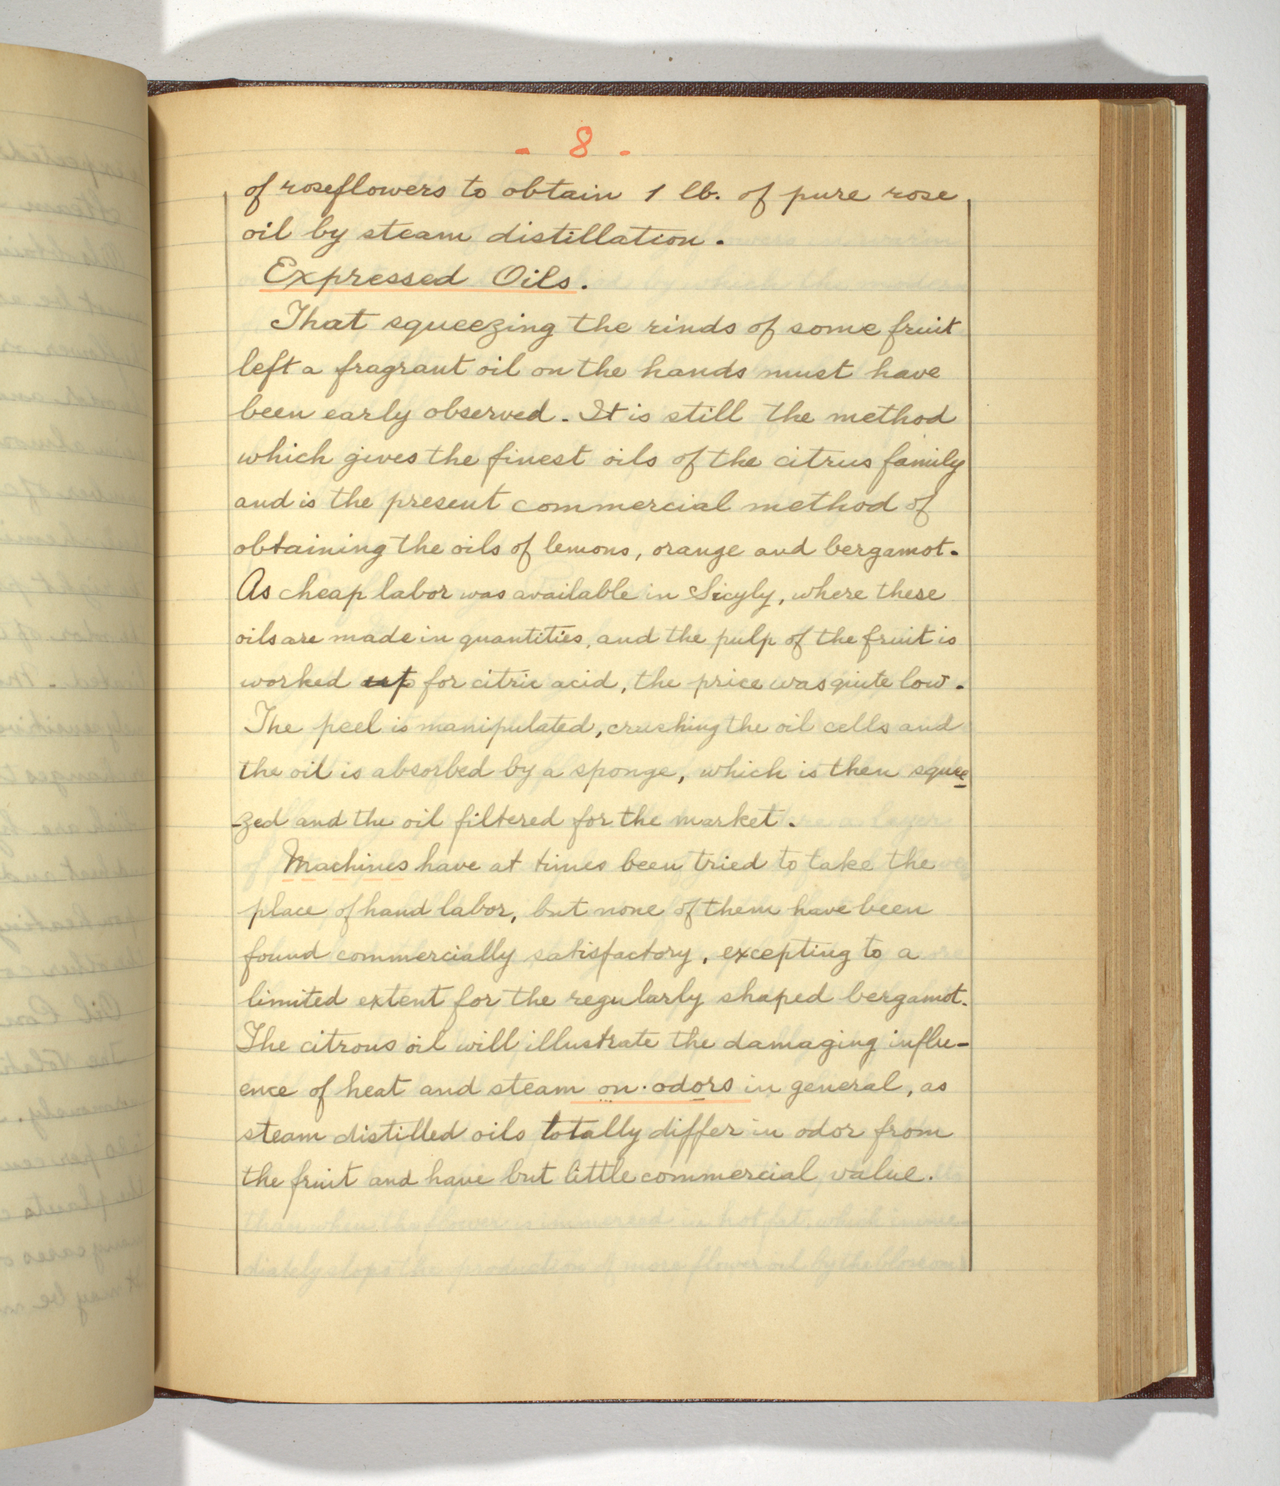 - 8 -
of roseflowers to obtain 1 lb. of pure rose
oil by steam distillation.
Expressed Oils.
That squeezing the rinds of some fruit
left a fragrant oil on the hands must have
been early observed. It is still the method
which gives the finest oils of the citrus family
and is the present commercial method of
obtaining the oils of lemons, orange and bergamot.
As cheap labor was available in Sicyly, where these
oils are made in quantities, and the pulp of the fruit is
worked up for citric acid, the price was quite low.
The peel is manipulated, crushing the oil cells and
the oil is absorbed by a sponge, which is then squee
-zed and the oil filtered for the market.
Machines have at times been tried to take the
place of hand labor, but none of them have been
found commercially satisfactory, excepting to a
limited extent for the regularly shaped bergamot.
The citrous oil will illustrate the damaging influ-
ence of heat and steam on odors in general, as
steam distilled oils totally differ in odor from
the fruit and have but little commercial value.